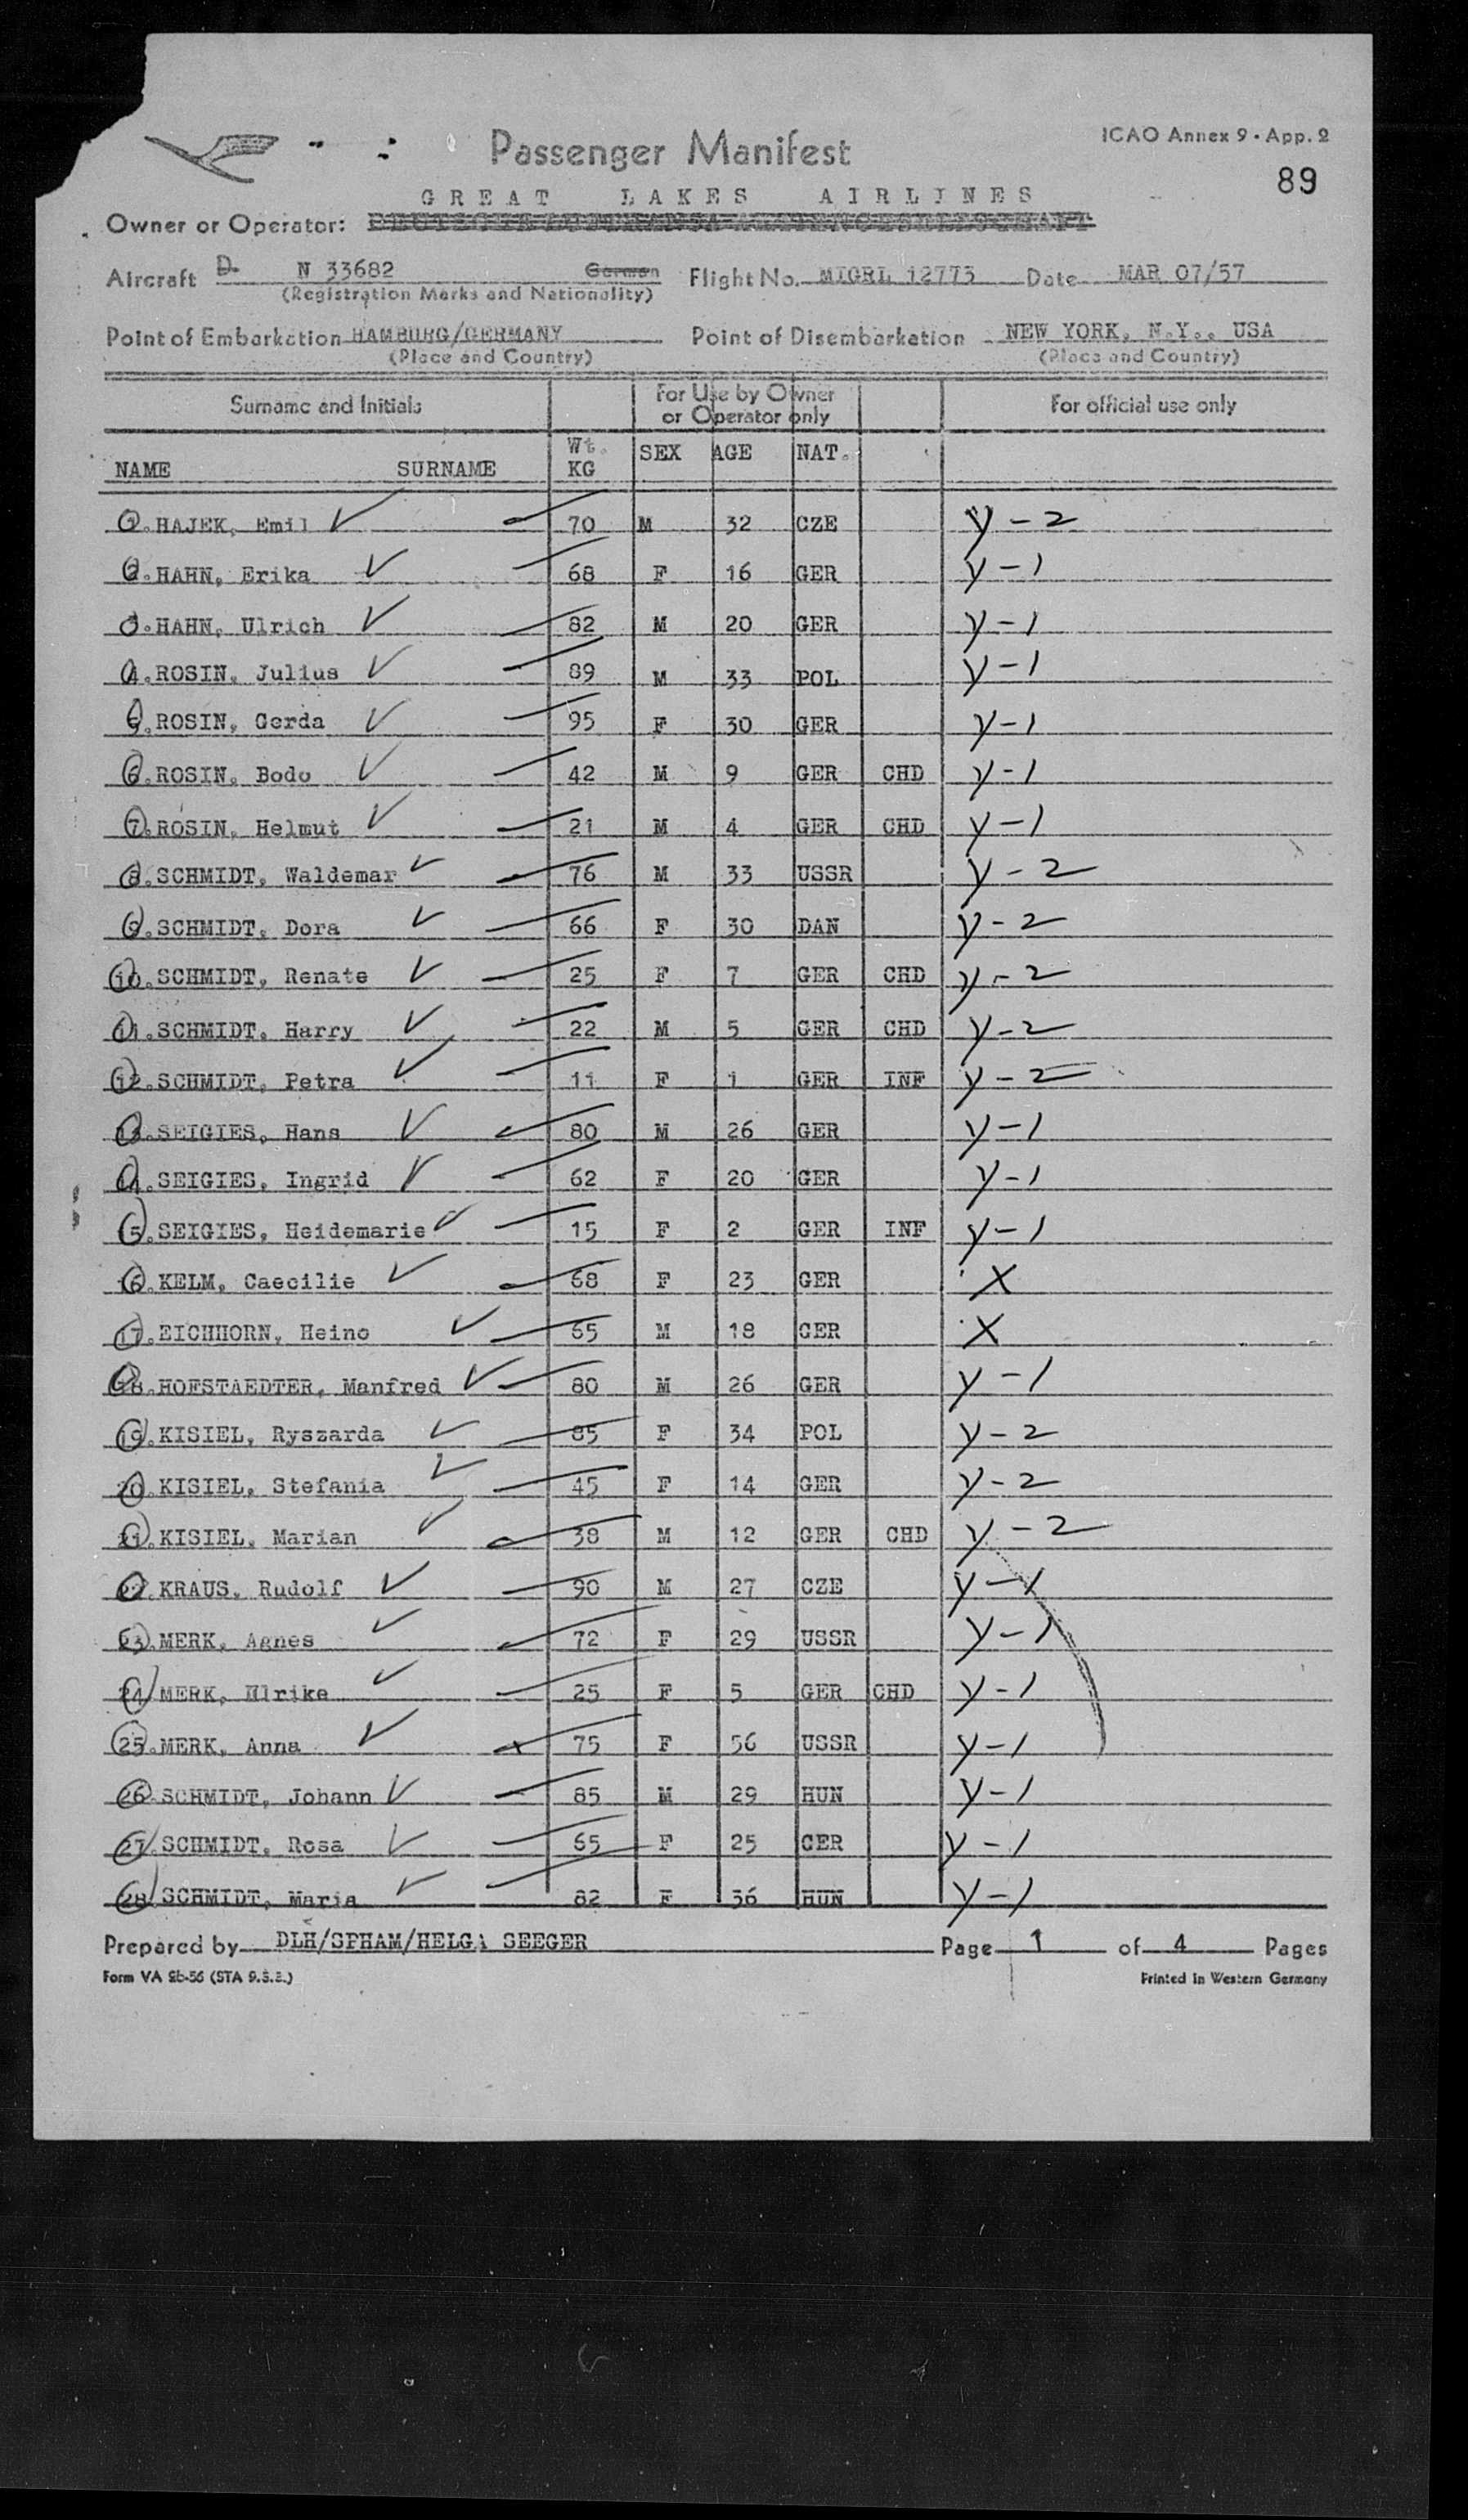 Passenger Manifest
ICAO Annex 9 · App. 2
89
GREAT LAKES AIRLINES
Owner or Operator:
Aircraft D- N 33682 German Flight No. MIGRL 12773 Date MAR 07/57
(Registration Marks and Nationality)
Point of Embarkation HAMBURG/GERMANY Point of Disembarkation NEW YORK, N.Y., USA
(Place and Country) (Place and Country)
Surname and Initials For Use by Owner or Operator only For official use only
NAME SURNAME Wt. KG SEX AGE NAT.
1. HAJEK, Emil 70 M 32 CZE y-2
2. HAHN, Erika 68 F 16 GER y-1
3. HAHN, Ulrich 82 M 20 GER y-1
4. ROSIN, Julius 89 M 33 POL y-1
5. ROSIN, Gerda 95 F 30 GER y-1
6. ROSIN, Bodo 42 M 9 GER CHD y-1
7. ROSIN, Helmut 21 M 4 GER CHD y-1
8. SCHMIDT, Waldemar 76 M 33 USSR y-2
9. SCHMIDT, Dora 66 F 30 DAN y-2
10. SCHMIDT, Renate 25 F 7 GER CHD y-2
11. SCHMIDT, Harry 22 M 5 GER CHD y-2
12. SCHMIDT, Petra 11 F 1 GER INF y-2
13. SEIGIES, Hans 80 M 26 GER y-1
14. SEIGIES, Ingrid 62 F 20 GER y-1
15. SEIGIES, Heidemarie 15 F 2 GER INF y-1
16. KELM, Caecilie 68 F 23 GER X
17. EICHHORN, Heino 65 M 18 GER X
18. HOFSTAEDTER, Manfred 80 M 26 GER y-1
19. KISIEL, Ryszarda 85 F 34 POL y-2
20. KISIEL, Stefania 45 F 14 GER y-2
21. KISIEL, Marian 38 M 12 GER CHD y-2
22. KRAUS, Rudolf 90 M 27 CZE y-1
23. MERK, Agnes 72 F 29 USSR y-1
24. MERK, Ulrike 25 F 5 GER CHD y-1
25. MERK, Anna 75 F 56 USSR y-1
26. SCHMIDT, Johann 85 M 29 HUN y-1
27. SCHMIDT, Rosa 65 F 25 GER y-1
28. SCHMIDT, Maria 82 F 36 HUN y-1
Prepared by DLH/SFHAM/HELGA SEEGER Page 1 of 4 Pages
Form VA 2b-56 (STA 9.3.2.) Printed in Western Germany